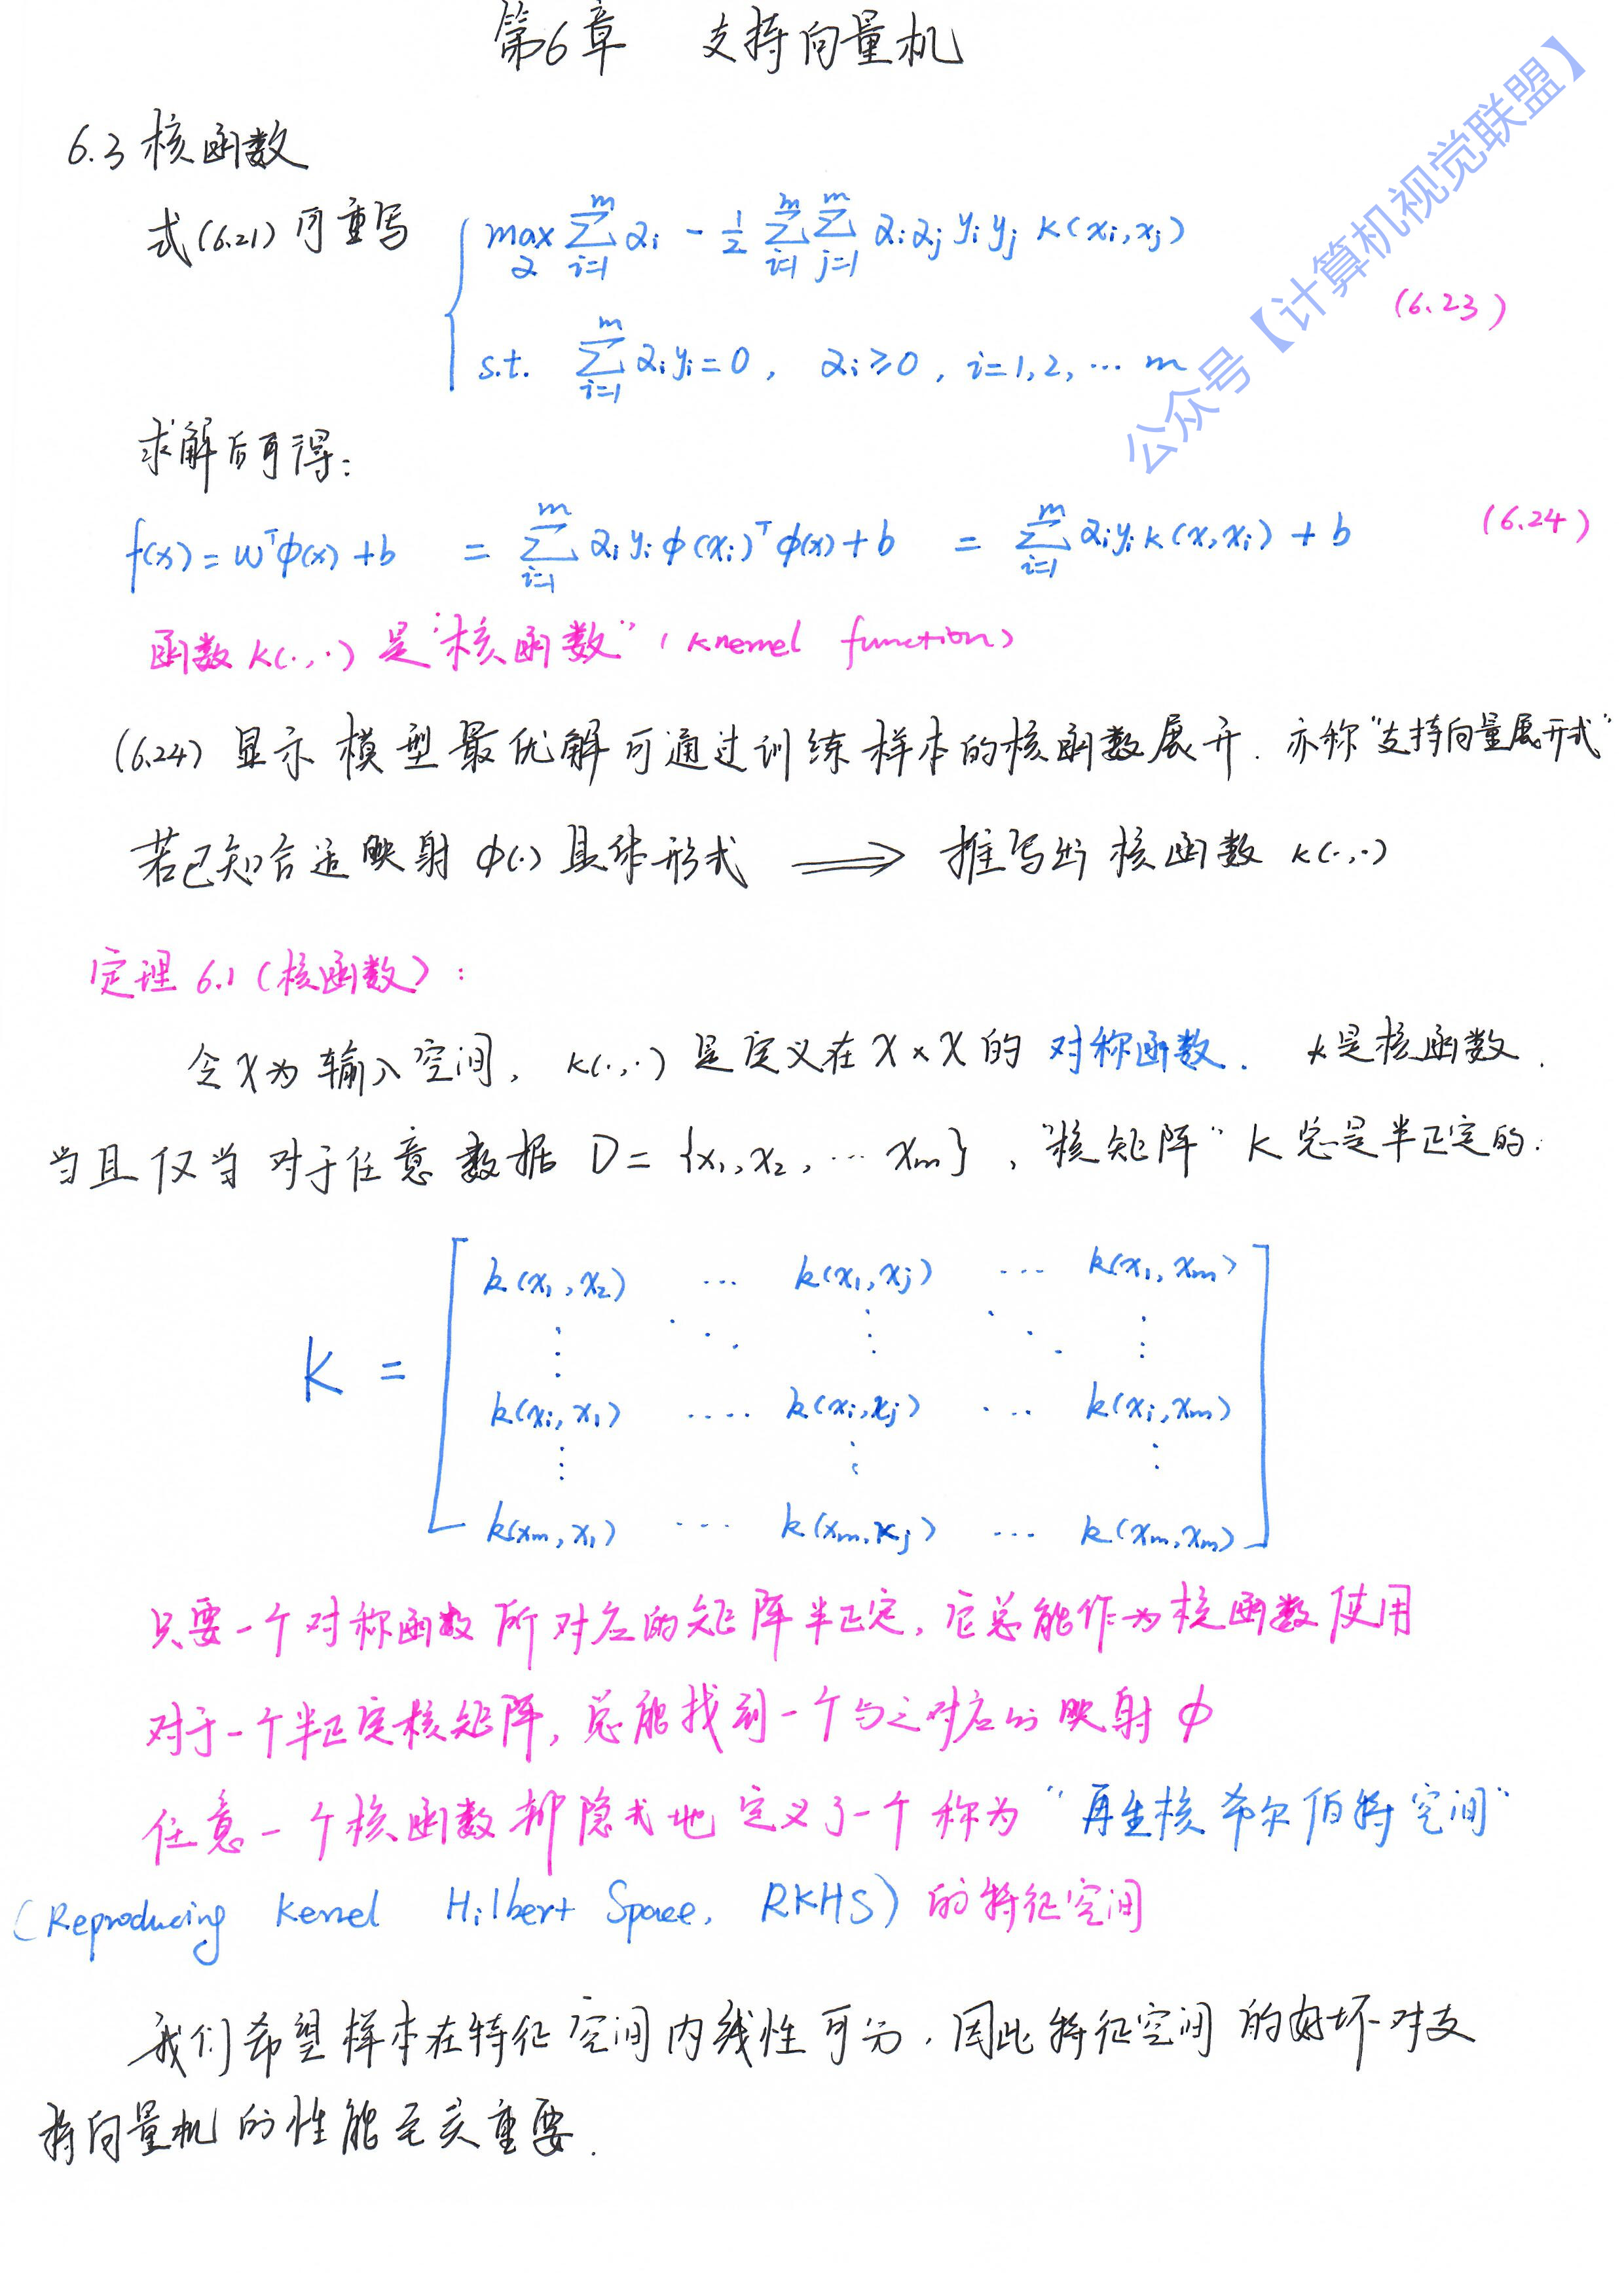 第6章 支持向量机
公众号【计算机视觉联盟】
6.3 核函数
式(6.21)可重写 { max_α ∑_{i=1}^{m} α_i - 1/2 ∑_{i=1}^{m} ∑_{j=1}^{m} α_i α_j y_i y_j κ(x_i, x_j)
(6.23)
s.t. ∑_{i=1}^{m} α_i y_i = 0, α_i ≥ 0, i=1,2,… m
求解后可得:
f(x) = w^T φ(x) + b = ∑_{i=1}^{m} α_i y_i φ(x_i)^T φ(x) + b = ∑_{i=1}^{m} α_i y_i κ(x, x_i) + b (6.24)
函数 κ(·,·) 是“核函数” (Knernel function)
(6.24) 显示模型最优解可通过训练样本的核函数展开. 亦称“支持向量展开式”
若已知合适映射 φ(·) 具体形式 ⟹ 推写出 核函数 κ(·,·)
定理 6.1 (核函数):
令X为输入空间, κ(·,·) 是定义在 X×X 的 对称函数. κ是核函数.
当且仅当 对于任意 数据 D = {x_1, x_2, … x_m}, “核矩阵” K 总是半正定的:
K = [ k(x_1, x_2) … k(x_1, x_j) … k(x_1, x_m)
⋮ ⋱ ⋮ ⋱ ⋮
k(x_i, x_1) …. k(x_i, x_j) … k(x_i, x_m)
⋮ ⋮ ⋮
k(x_m, x_1) … k(x_m, x_j) … k(x_m, x_m) ]
只要一个对称函数所对应的矩阵半正定, 它总能作为核函数使用
对于一个半正定核矩阵, 总能找到一个与之对应的映射 φ
任意一个核函数都隐式地定义了一个称为“再生核希尔伯特空间”
(Reproducing Kernel Hilbert Space, RKHS) 的特征空间
我们希望样本在特征空间内线性可分, 因此特征空间的好坏对支
持向量机的性能至关重要.